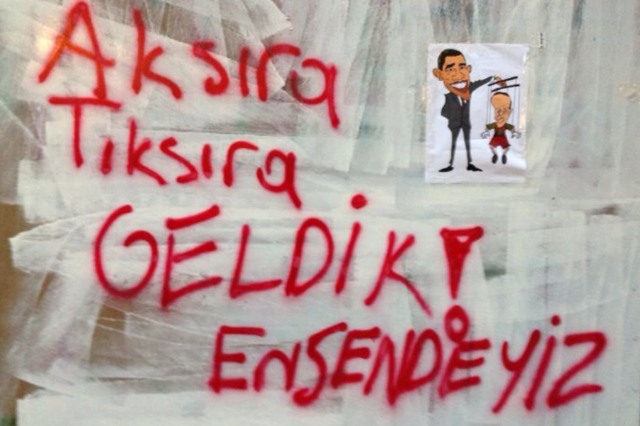 Aksıra
Tıksıra
GELDİK!
ENSENDEYİZ